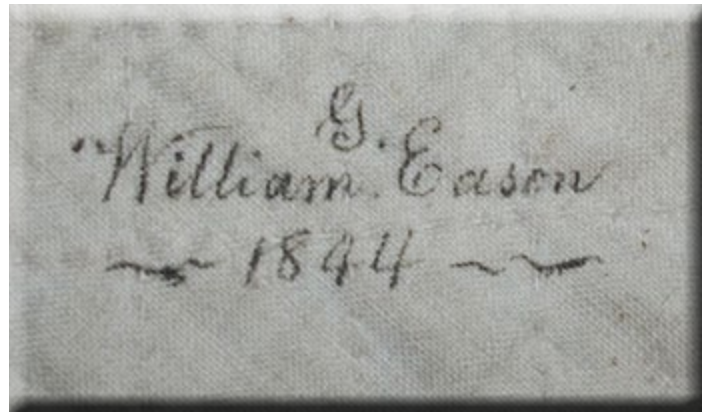 G.
William. Eason
~ 1844 ~~